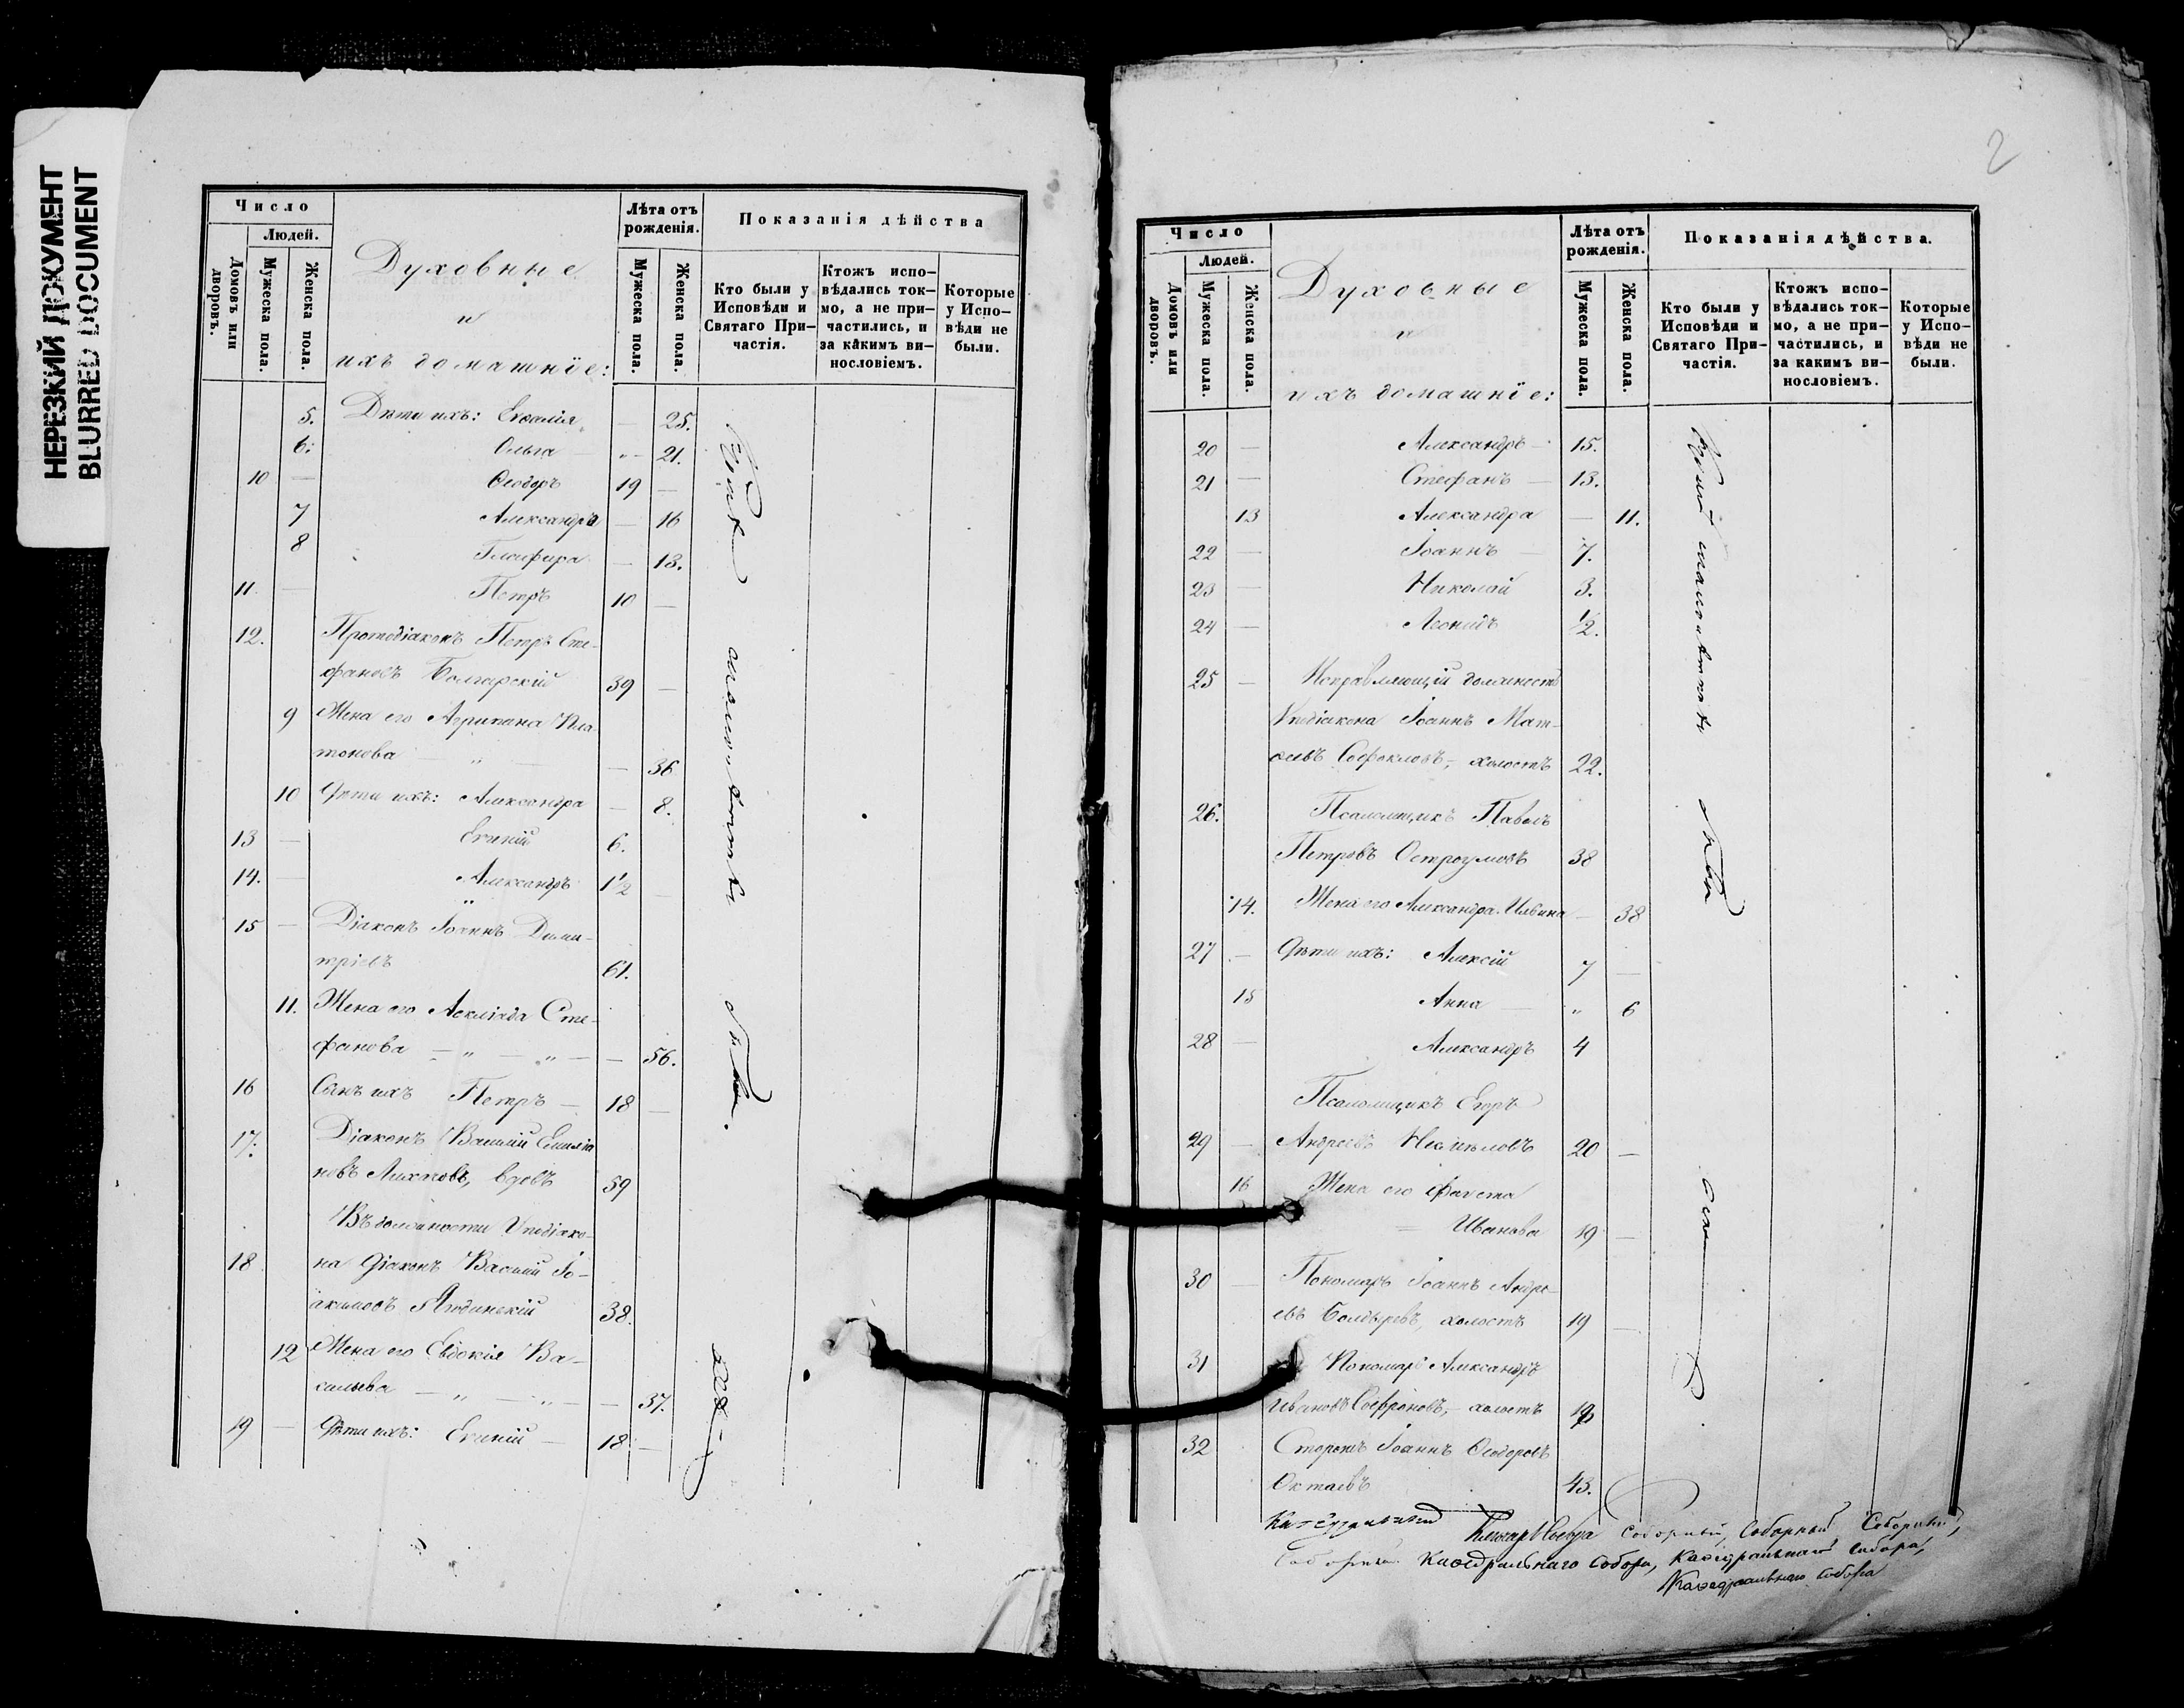 НЕРЕЗКИЙ ДОКУМЕНТ
BLURRED DOCUMENT
Число
Людей.
Домовъ или дворовъ.
Мужеска пола.
Женска пола.
Духовные
и
ихъ домашніе:
Лѣта отъ рожденія.
Мужеска пола.
Женска пола.
Показанія дѣйства
Кто были у Исповѣди и Святаго При-частія.
Ктожъ испо-вѣдались ток-мо, а не при-частились, и за какимъ ви-нословіемъ.
Которые у Испо-вѣди не были.
5. Дѣти ихъ: — 25.
6. Ольга — 21.
10 — Ѳеодоръ 19 —
7 Александра — 16
8 Глафира — 13.
11 — Петръ 10 —
12. Протодіаконъ Петръ Сте-
фановъ Болгарскій 39 —
9 Жена его Агрипина Пла-
тонова — " — — 36
10 Дѣти ихъ: Александра — 8.
13 — Евгеній 6.
14. — Александръ 1½ —
15 — Діаконъ Іоаннъ Дими-
тріевъ 61.
11. Жена его Сте-
фанова — " — " — — 56.
16 Сынъ ихъ Петръ — 18 —
17. Діаконъ Василій Емилія
новъ вдовъ 59
Въ должности Иподіако-
18 на Діаконъ Василій Іо-
акимовъ 38.
12 Жена его Евдокія Ва-
сильева — " — " — — 37.
19 — Дѣти ихъ: Евгеній — 18 —
2
Число
Людей.
Домовъ или дворовъ.
Мужеска пола.
Женска пола.
Духовные
и
ихъ домашніе:
Лѣта отъ рожденія.
Мужеска пола.
Женска пола.
Показанія дѣйства.
Кто были у Исповѣди и Святаго При-частія.
Ктожъ испо-вѣдались ток-мо, а не при-частились, и за какимъ ви-нословіемъ.
Которые у Испо-вѣди не были.
20 — Александръ — 15.
21 — Стефанъ — 13.
13 Александра — 11.
22 — Іоаннъ — 7.
23 — Николай 3.
24 — Леонидъ ½.
25 — Исправляющій должность
Иподіакона Іоаннъ Мат-
ѳеевъ Софокловъ, холостъ 22.
26. Псаломщикъ Павелъ
Петровъ Остроумовъ 38
14. Жена его Александра Ильина — 38
27 — Дѣти ихъ: Алексій 7 —
15 Анна — " 6
28 — Александръ 4
Псаломщикъ Егоръ
29 — Андреевъ 20 —
16 Жена его
Иванова 19 —
30 — Пономарь Іоаннъ Андре-
евъ Болдыревъ, холостъ 19 —
31 Пономарь Александръ
Ивановъ Софроновъ, — холостъ 19
32 Сторожъ Іоаннъ Ѳеодоровъ
43.
Соборный, Соборный Соборный,
Каѳедральнаго Собора, Каѳедральнаго Собора,
Каѳедральнаго Собора